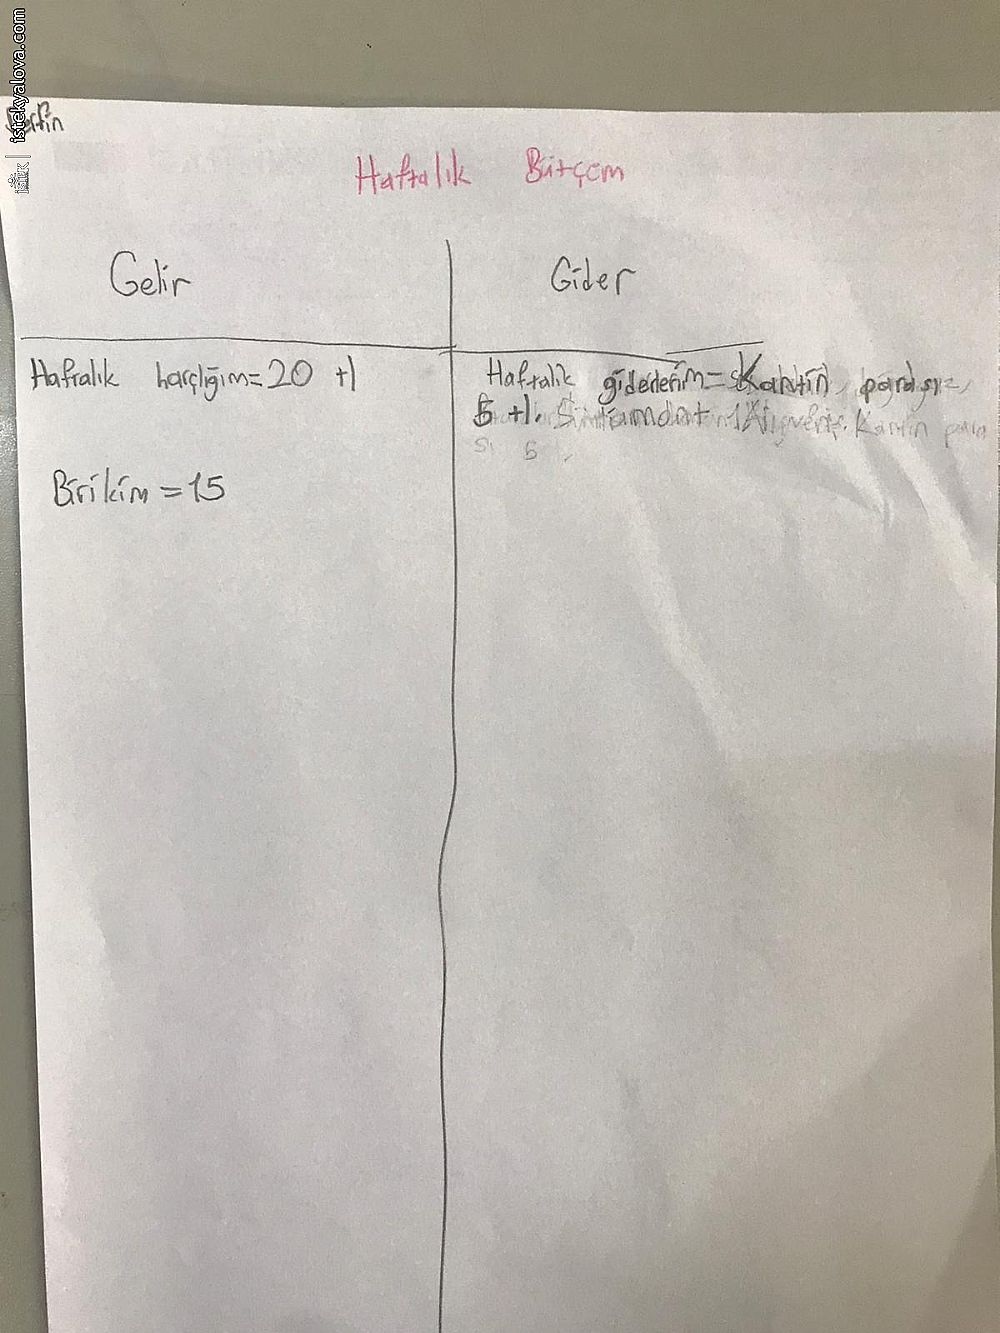 istekyalova.com
Haftalık Bütçem
Gelir
Haftalık harçlığım=20 tl
Birikim =15
Gider
Haftalık giderlerim= Kantin parası=
5 tl.
Kantin para
sı 5